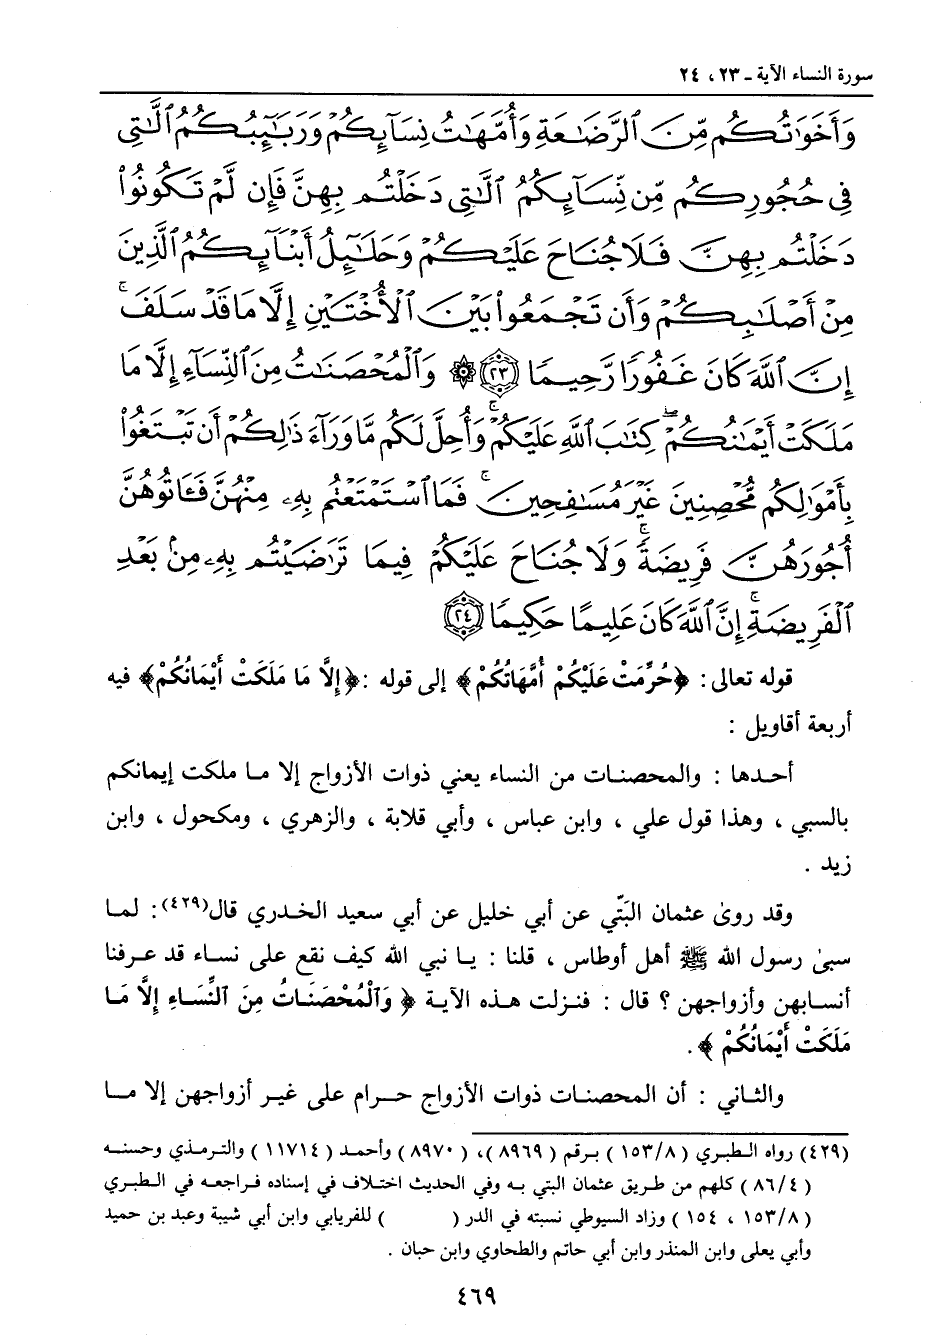 سورة النساء الآية ـ ٢٣ ، ٢٤
وَأَخَوَٰتُكُم مِّنَ ٱلرَّضَٰعَةِ وَأُمَّهَٰتُ نِسَآئِكُمْ وَرَبَٰٓئِبُكُمُ ٱلَّٰتِى
فِى حُجُورِكُم مِّن نِّسَآئِكُمُ ٱلَّٰتِى دَخَلْتُم بِهِنَّ فَإِن لَّمْ تَكُونُوا۟
دَخَلْتُم بِهِنَّ فَلَا جُنَاحَ عَلَيْكُمْ وَحَلَٰٓئِلُ أَبْنَآئِكُمُ ٱلَّذِينَ
مِنْ أَصْلَٰبِكُمْ وَأَن تَجْمَعُوا۟ بَيْنَ ٱلْأُخْتَيْنِ إِلَّا مَا قَدْ سَلَفَ ۚ
إِنَّ ٱللَّهَ كَانَ غَفُورًا رَّحِيمًا ﴿٢٣﴾ ۞ وَٱلْمُحْصَنَٰتُ مِنَ ٱلنِّسَآءِ إِلَّا مَا
مَلَكَتْ أَيْمَٰنُكُمْ ۖ كِتَٰبَ ٱللَّهِ عَلَيْكُمْ ۚ وَأُحِلَّ لَكُم مَّا وَرَآءَ ذَٰلِكُمْ أَن تَبْتَغُوا۟
بِأَمْوَٰلِكُم مُّحْصِنِينَ غَيْرَ مُسَٰفِحِينَ ۚ فَمَا ٱسْتَمْتَعْتُم بِهِۦ مِنْهُنَّ فَـَٔاتُوهُنَّ
أُجُورَهُنَّ فَرِيضَةً ۚ وَلَا جُنَاحَ عَلَيْكُمْ فِيمَا تَرَٰضَيْتُم بِهِۦ مِنۢ بَعْدِ
ٱلْفَرِيضَةِ ۚ إِنَّ ٱللَّهَ كَانَ عَلِيمًا حَكِيمًا ﴿٢٤﴾
قوله تعالى : ﴿حُرِّمَتْ عَلَيْكُمْ أُمَّهَاتُكُمْ﴾ إلى قوله : ﴿إِلَّا مَا مَلَكَتْ أَيْمَانُكُمْ﴾ فيه
أربعة أقاويل :
أحدها : والمحصنات من النساء يعني ذوات الأزواج إلا ما ملكت إيمانكم
بالسبي ، وهذا قول علي ، وابن عباس ، وأبي قلابة ، والزهري ، ومكحول ، وابن
زيد .
وقد روىٰ عثمان البَتّي عن أبي خليل عن أبي سعيد الخدري قال(٤٢٩) : لما
سبىٰ رسول الله ﷺ أهل أوطاس ، قلنا : يا نبي الله كيف نقع على نساء قد عرفنا
أنسابهن وأزواجهن ؟ قال : فنزلت هذه الآية ﴿ وَٱلْمُحْصَنَاتُ مِنَ ٱلنِّسَاءِ إِلَّا مَا
مَلَكَتْ أَيْمَانُكُمْ ﴾ .
والثاني : أن المحصنات ذوات الأزواج حرام على غير أزواجهن إلا ما
(٤٢٩) رواه الطبري ( ١٥٣/٨ ) برقم ( ٨٩٦٩ )، ( ٨٩٧٠ ) وأحمد ( ١١٧١٤ ) والترمذي وحسنه
( ٨٦/٤ ) كلهم من طريق عثمان البتي به وفي الحديث اختلاف في إسناده فراجعه في الطبري
( ١٥٣/٨ ، ١٥٤ ) وزاد السيوطي نسبته في الدر ( ) للفريابي وابن أبي شيبة وعبد بن حميد
وأبي يعلى وابن المنذر وابن أبي حاتم والطحاوي وابن حبان .
٤٦٩